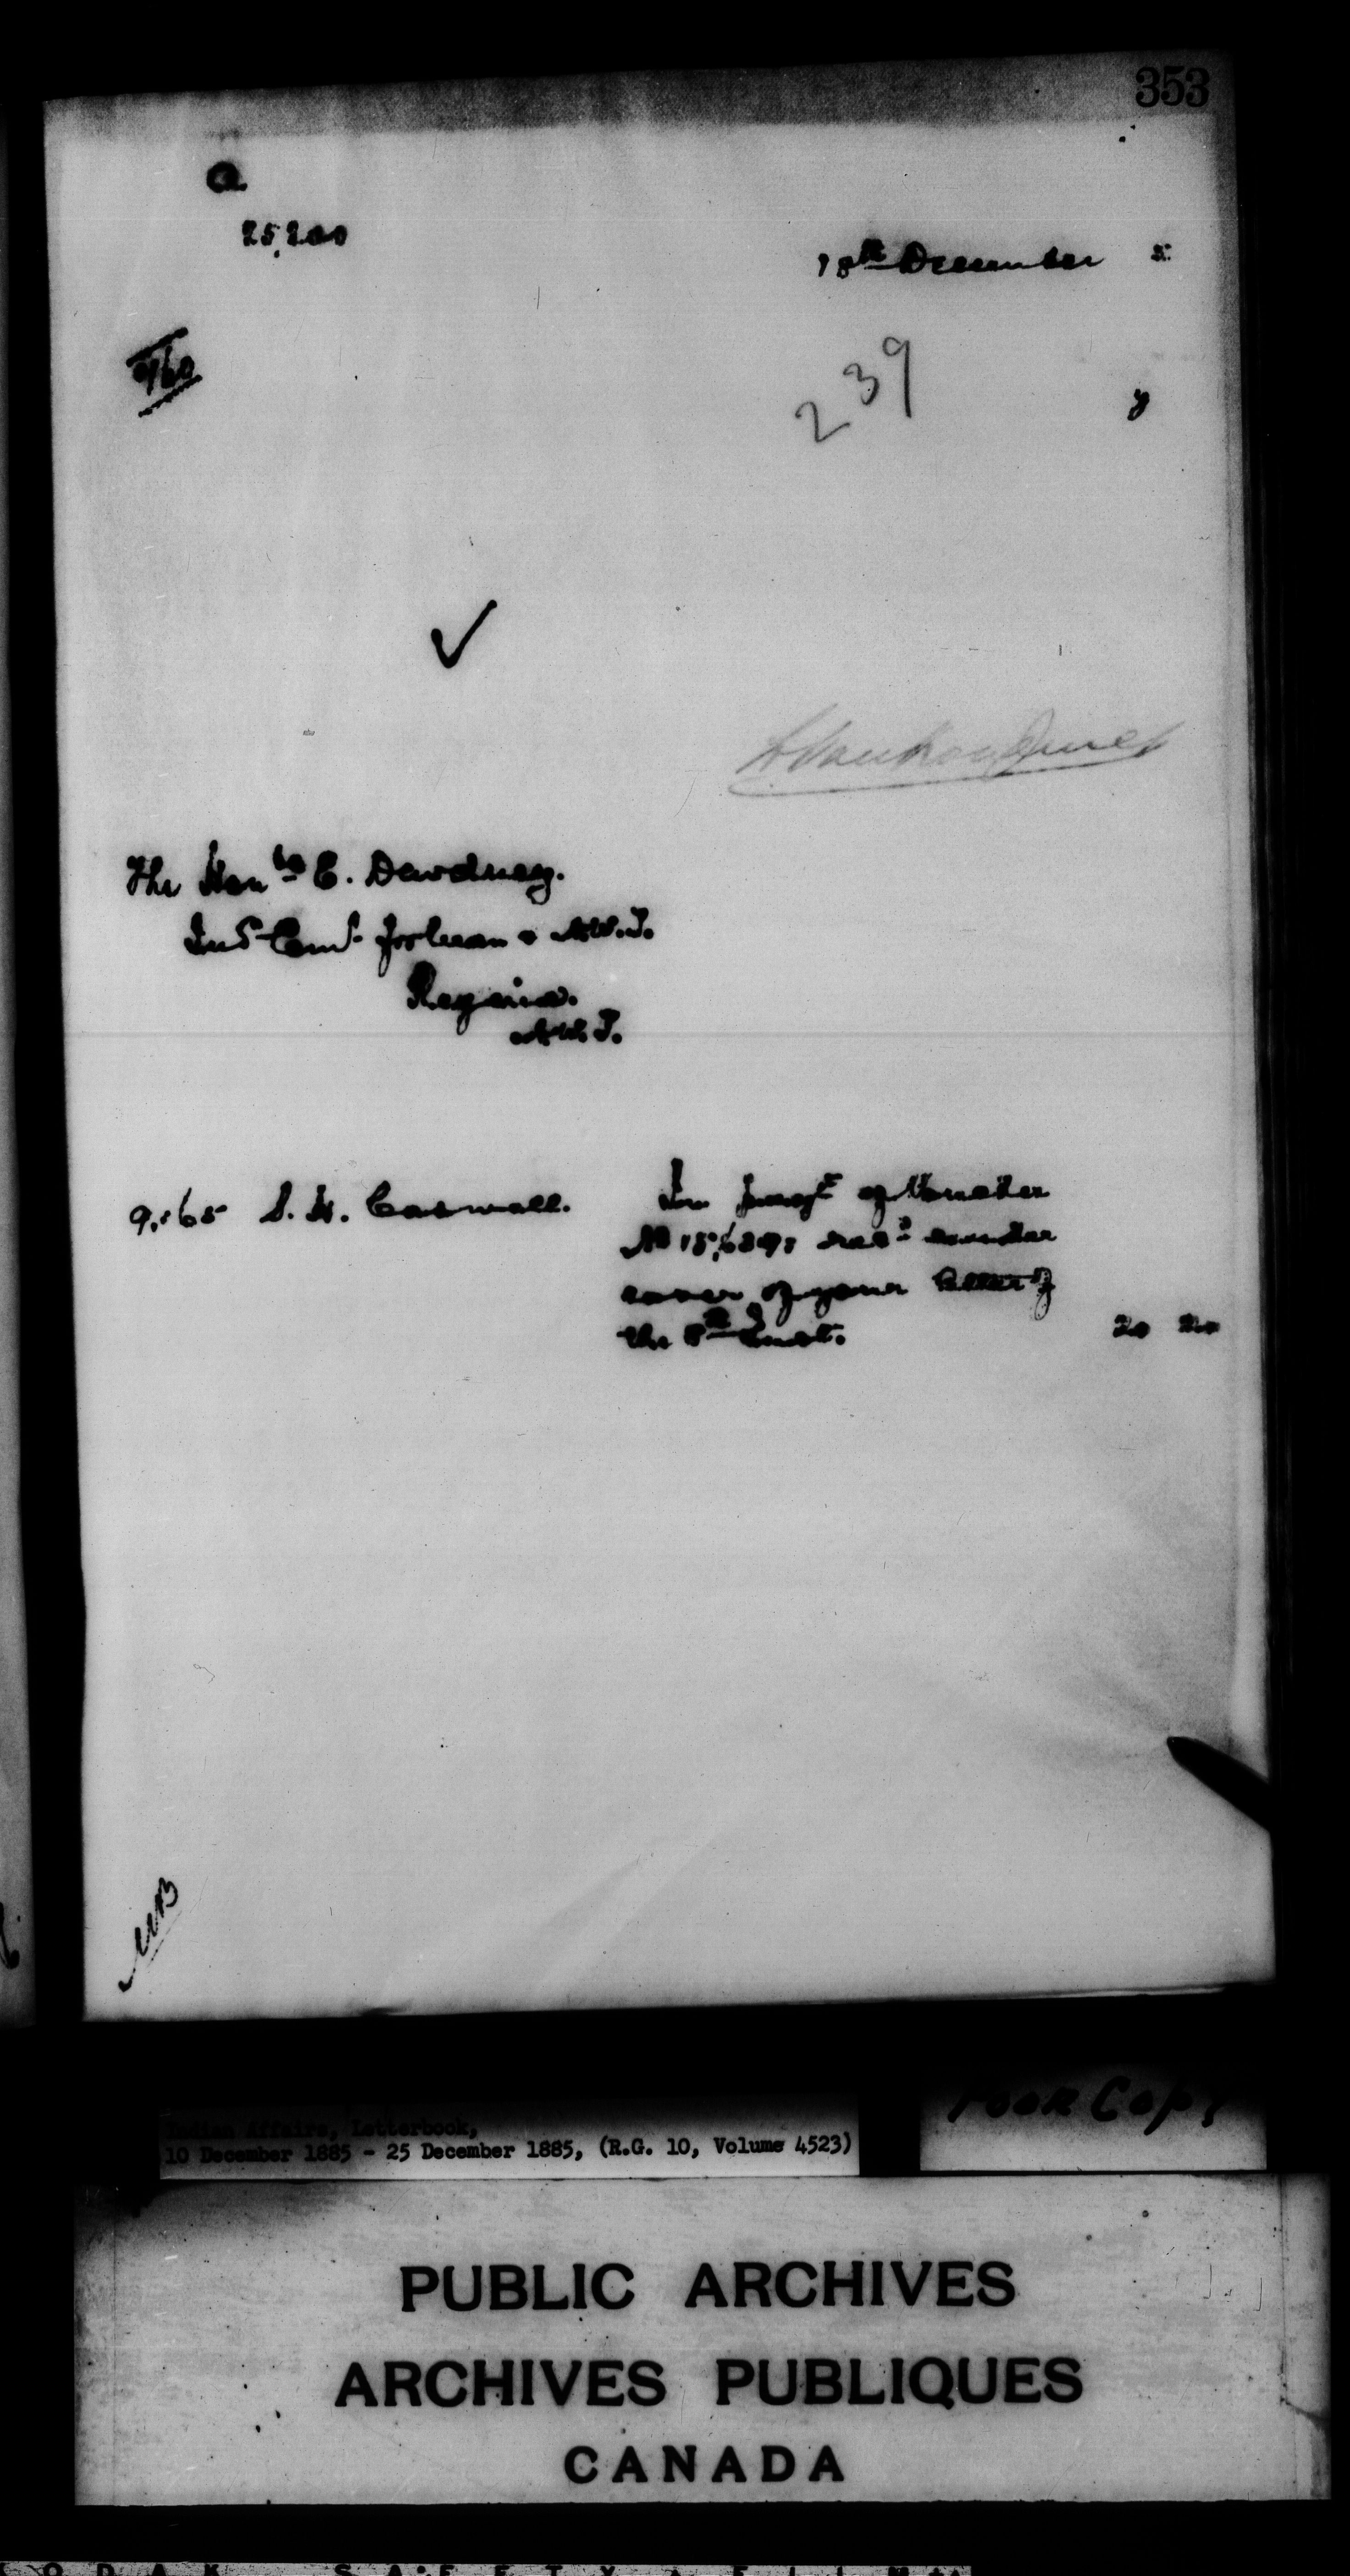 353
a
25,200
18th December 5
960
239
y
L Vankoughnet
The Honble E. Dewdney.
Ind Comr. for Man & N.W.T.
Regina.
N.W.T.
9,165 S. H. Caswall. In paymt of Voucher
No 15,639, recd under
cover of your letter of
the 8th Inst. 20 20
MB
Indian Affairs, Letterbook,
10 December 1885 - 25 December 1885, (R.G. 10, Volume 4523)
Poor Copy
PUBLIC ARCHIVES
ARCHIVES PUBLIQUES
CANADA